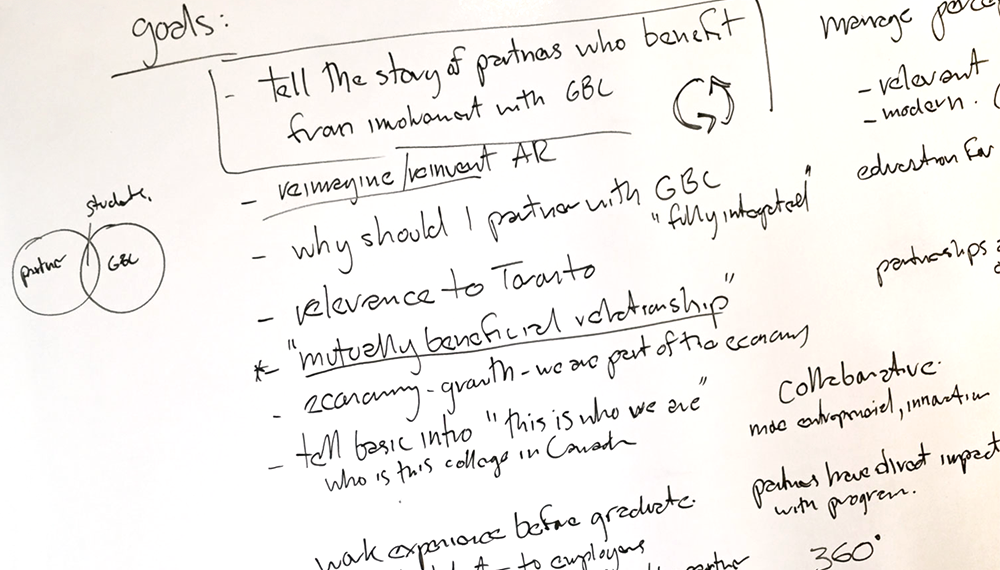 goals:
- tell the story of partners who benefit
from involvement with GBC
- reimagine/reinvent AR
- why should I partner with GBC
"fully integrated"
- relevance to Toronto
*- "mutually beneficial relationship"
- economy - growth - we are part of the economy
- tell basic intro "this is who we are"
who is this college in Canada
work experience before graduate.
- to employers
partner
students.
partner
GBC
manage
- relevant
- modern.
education for
partnerships
collaborative.
more entrepreneurial, innovation
partners have direct impact
with program.
360°